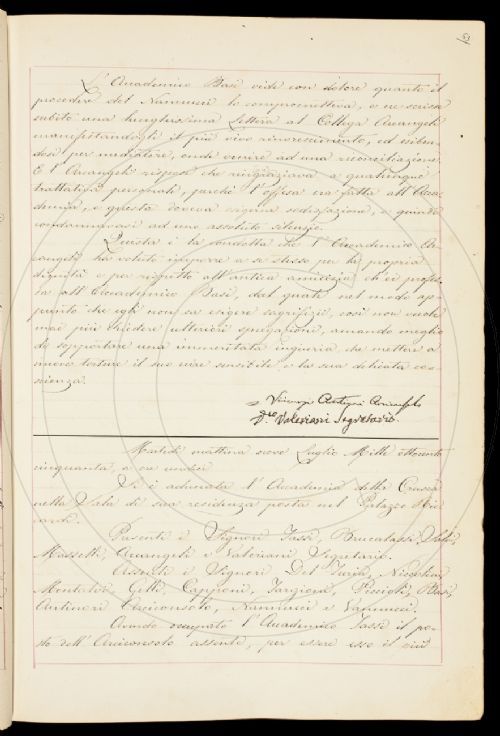 61
L'Accademico Basi vide con dolore quanto il
procedere del Nannucci lo comprometteva, e ne scrisse
subito una lunghissima Lettera al Collega Arcangeli
manifestandogli il più vivo rincrescimento, ed esiben-
dosi per mediatore, onde venire ad una riconciliazione.
E l'Arcangeli rispose che ringraziava a qualunque
trattativa personali, perchè l'offesa era fatta all'Acca-
demia, e questa doveva esigere sodisfazione, o quindi
condannarsi ad uno assoluto silenzio.
Questa è la condotta che l'Accademico Ar-
cangeli ha voluto imporre a se stesso per la propria
dignità e per rispetto all'antica amicizia ch'ei profes-
sa all'Accademico Basi, dal quale nel modo ap-
punto che egli non sa esigere sagrifizi, così non vuole
mai più chiedere ulteriori spiegazioni, amando meglio
di sopportare una immeritata ingiuria, che mettere a
nuove torture il suo vivo sensibile, e la sua delicata co-
scienza.
Arciconsolo
D.co Valeriani Segretario.
Martedì mattina nove Luglio Mille ottocento
cinquanta, a ore undici
Si è adunata l'Accademia della Crusca
nella Sala di sua residenza posta nel Palazzo Ric-
cardi.
Presenti i Signori Tassi, Brucalassi,
Massetti, Arcangeli e Valeriani Segretario.
Assenti i Signori Del Furia, Niccolini,
Mentatori, Gelli, Capponi, Targioni, Piccioli, Basi,
Antinori Arciconsolo, Nannucci e Vannucci.
Avendo occupato l'Accademico Tassi il po-
sto dell'Arciconsolo assente, per essere esso il più